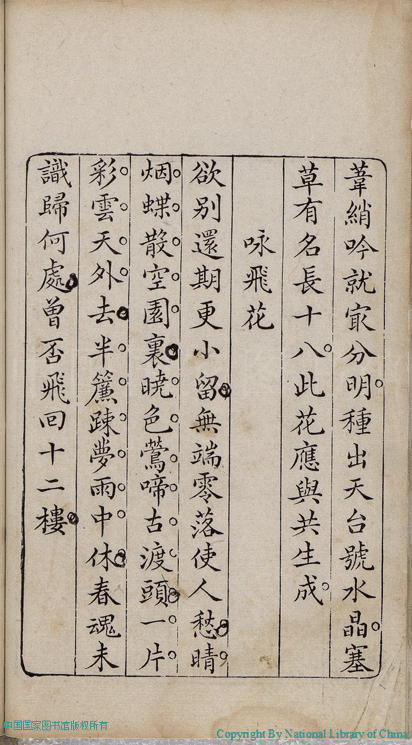 葦綃吟就㝡分明種出天台號水晶塞
草有名長十八此花應與共生成
咏飛花
欲别還期更小留無端零落使人愁晴
烟蝶散空園裏曉色鶯啼古渡頭一片
彩雲天外去半簾踈夢雨中休春魂未
識歸何處曾否飛回十二樓
中国国家图书馆版权所有
Copyright By National Library of China